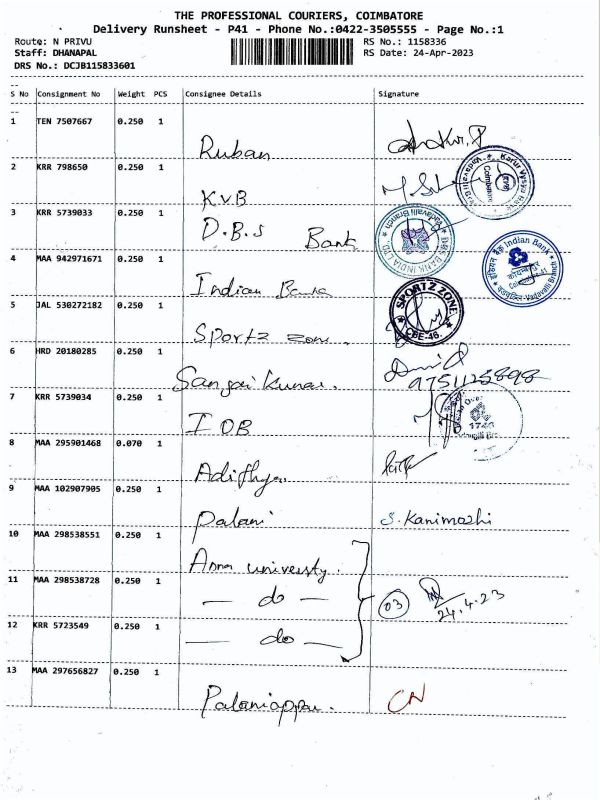 THE PROFESSIONAL COURIERS, COIMBATORE
Delivery Runsheet - P41 - Phone No.:0422-3505555 - Page No.:1
Route: N PRIVU RS No.: 1158336
Staff: DHANAPAL RS Date: 24-Apr-2023
DRS No.: DCJB115833601
S No Consignment No Weight PCS Consignee Details Signature
1 TEN 7507667 0.250 1
Ruban
2 KRR 798650 0.250 1
KVB
3 KRR 5739033 0.250 1
D.B.S Bank
4 MAA 942971671 0.250 1
Indian Bank
5 JAL 530272182 0.250 1
Sportz zone.
SPORTZ ZONE
CBE-46.
6 HRD 20180285 0.250 1
Sanjai Kumar.
9751125898
7 KRR 5739034 0.250 1
IOB
8 MAA 295901468 0.070 1
9 MAA 102907905 0.250 1
Palani S. Kanimozhi
10 MAA 298538551 0.250 1
Anna university.
11 MAA 298538728 0.250 1
— do — 03 24.4.23
12 KRR 5723549 0.250 1
— do —
13 MAA 297656827 0.250 1
Palaniappan. CN
Karur Vysya Bank
Coimbatore
DBS BANK INDIA LTD.
Vadavalli Branch
Indian Bank